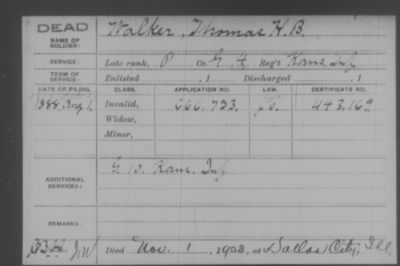 DEAD
NAME OF SOLDIER: Walker, Thomas H. B.
SERVICE: Late rank, P Co. Reg't Kans Inf
TERM OF SERVICE: Enlisted , 1 Discharged , 1
DATE OF FILING. CLASS. APPLICATION NO. LAW. CERTIFICATE NO.
1888 Aug 1. Invalid, 666.733 443.169
Widow,
Minor,
ADDITIONAL SERVICES: G 13. Kans. Inf
REMARKS:
Died Nov. 1, 1928, at Dallas City, Ill